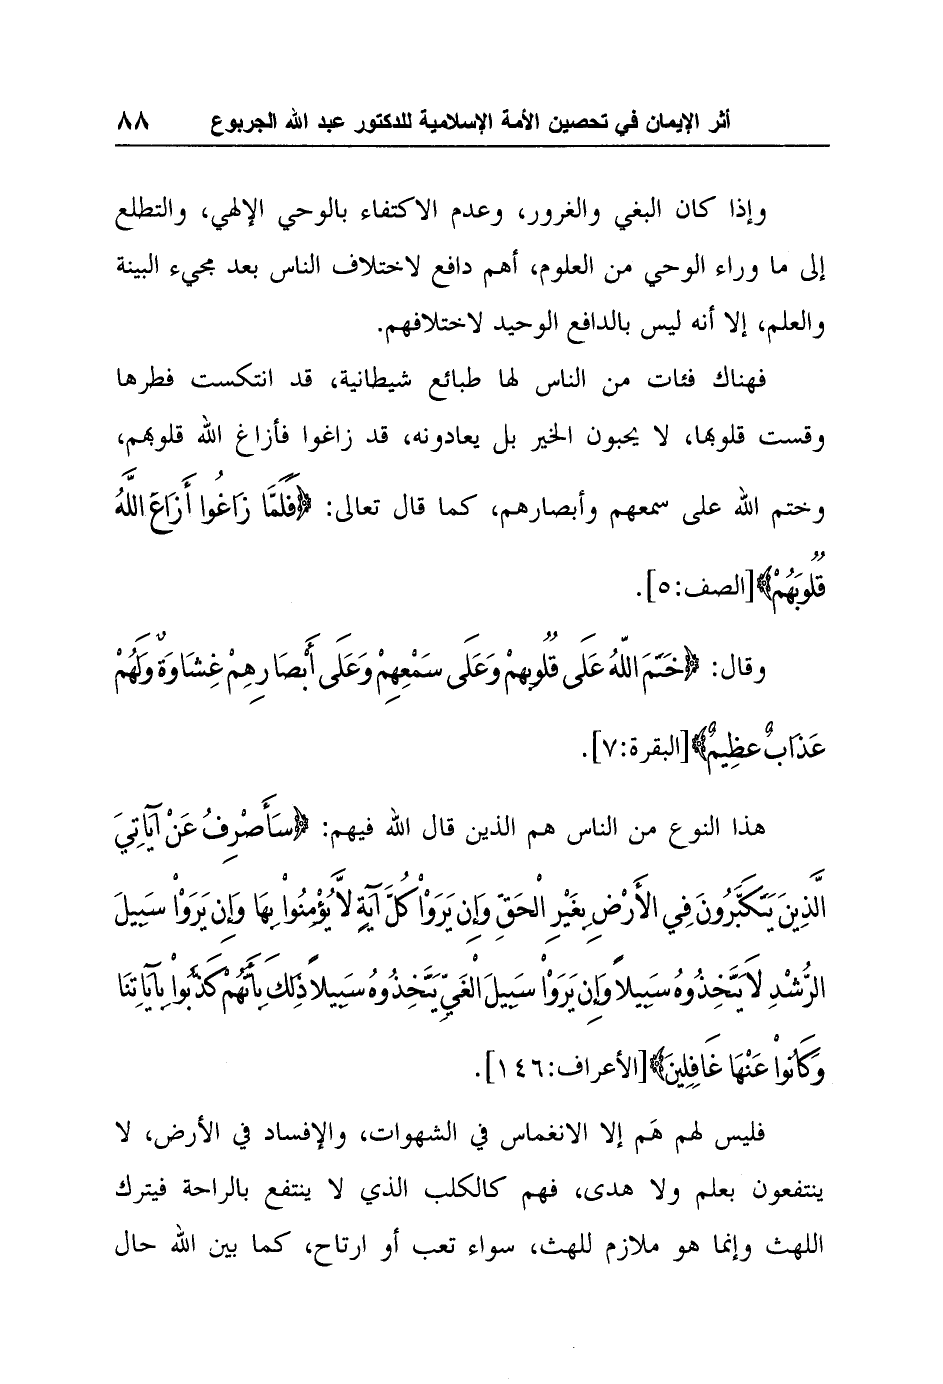 أثر الإيمان في تحصين الأمة الإسلامية للدكتور عبد الله الجربوع ٨٨
وإذا كان البغي والغرور، وعدم الاكتفاء بالوحي الإلهي، والتطلع
إلى ما وراء الوحي من العلوم، أهم دافع لاختلاف الناس بعد مجيء البينة
والعلم، إلا أنه ليس بالدافع الوحيد لاختلافهم.
فهناك فئات من الناس لها طبائع شيطانية، قد انتكست فطرها
وقست قلوبها، لا يحبون الخير بل يعادونه، قد زاغوا فأزاغ الله قلوبهم،
وختم الله على سمعهم وأبصارهم، كما قال تعالى: ﴿فَلَمَّا زَاغُوا أَزَاغَ اللَّهُ
قُلُوبَهُمْ﴾[الصف:٥].
وقال: ﴿خَتَمَ اللَّهُ عَلَى قُلُوبِهِمْ وَعَلَى سَمْعِهِمْ وَعَلَى أَبْصَارِهِمْ غِشَاوَةٌ وَلَهُمْ
عَذَابٌ عظِيمٌ﴾[البقرة:٧].
هذا النوع من الناس هم الذين قال الله فيهم: ﴿سَأَصْرِفُ عَنْ آيَاتِيَ
الَّذِينَ يَتَكَبَّرُونَ فِي الأَرْضِ بِغَيْرِ الْحَقِّ وَإِن يَرَوْاْ كُلَّ آيَةٍ لاَّ يُؤْمِنُواْ بِهَا وَإِن يَرَوْاْ سَبِيلَ
الرُّشْدِ لاَ يَتَّخِذُوهُ سَبِيلاً وَإِن يَرَوْاْ سَبِيلَ الْغَيِّ يَتَّخِذُوهُ سَبِيلاً ذَلِكَ بِأَنَّهُمْ كَذَّبُواْ بِآيَاتِنَا
وَكَانُواْ عَنْهَا غَافِلِينَ﴾[الأعراف:١٤٦].
فليس لهم هَم إلا الانغماس في الشهوات، والإفساد في الأرض، لا
ينتفعون بعلم ولا هدى، فهم كالكلب الذي لا ينتفع بالراحة فيترك
اللهث وإنما هو ملازم للهث، سواء تعب أو ارتاح، كما بين الله حال